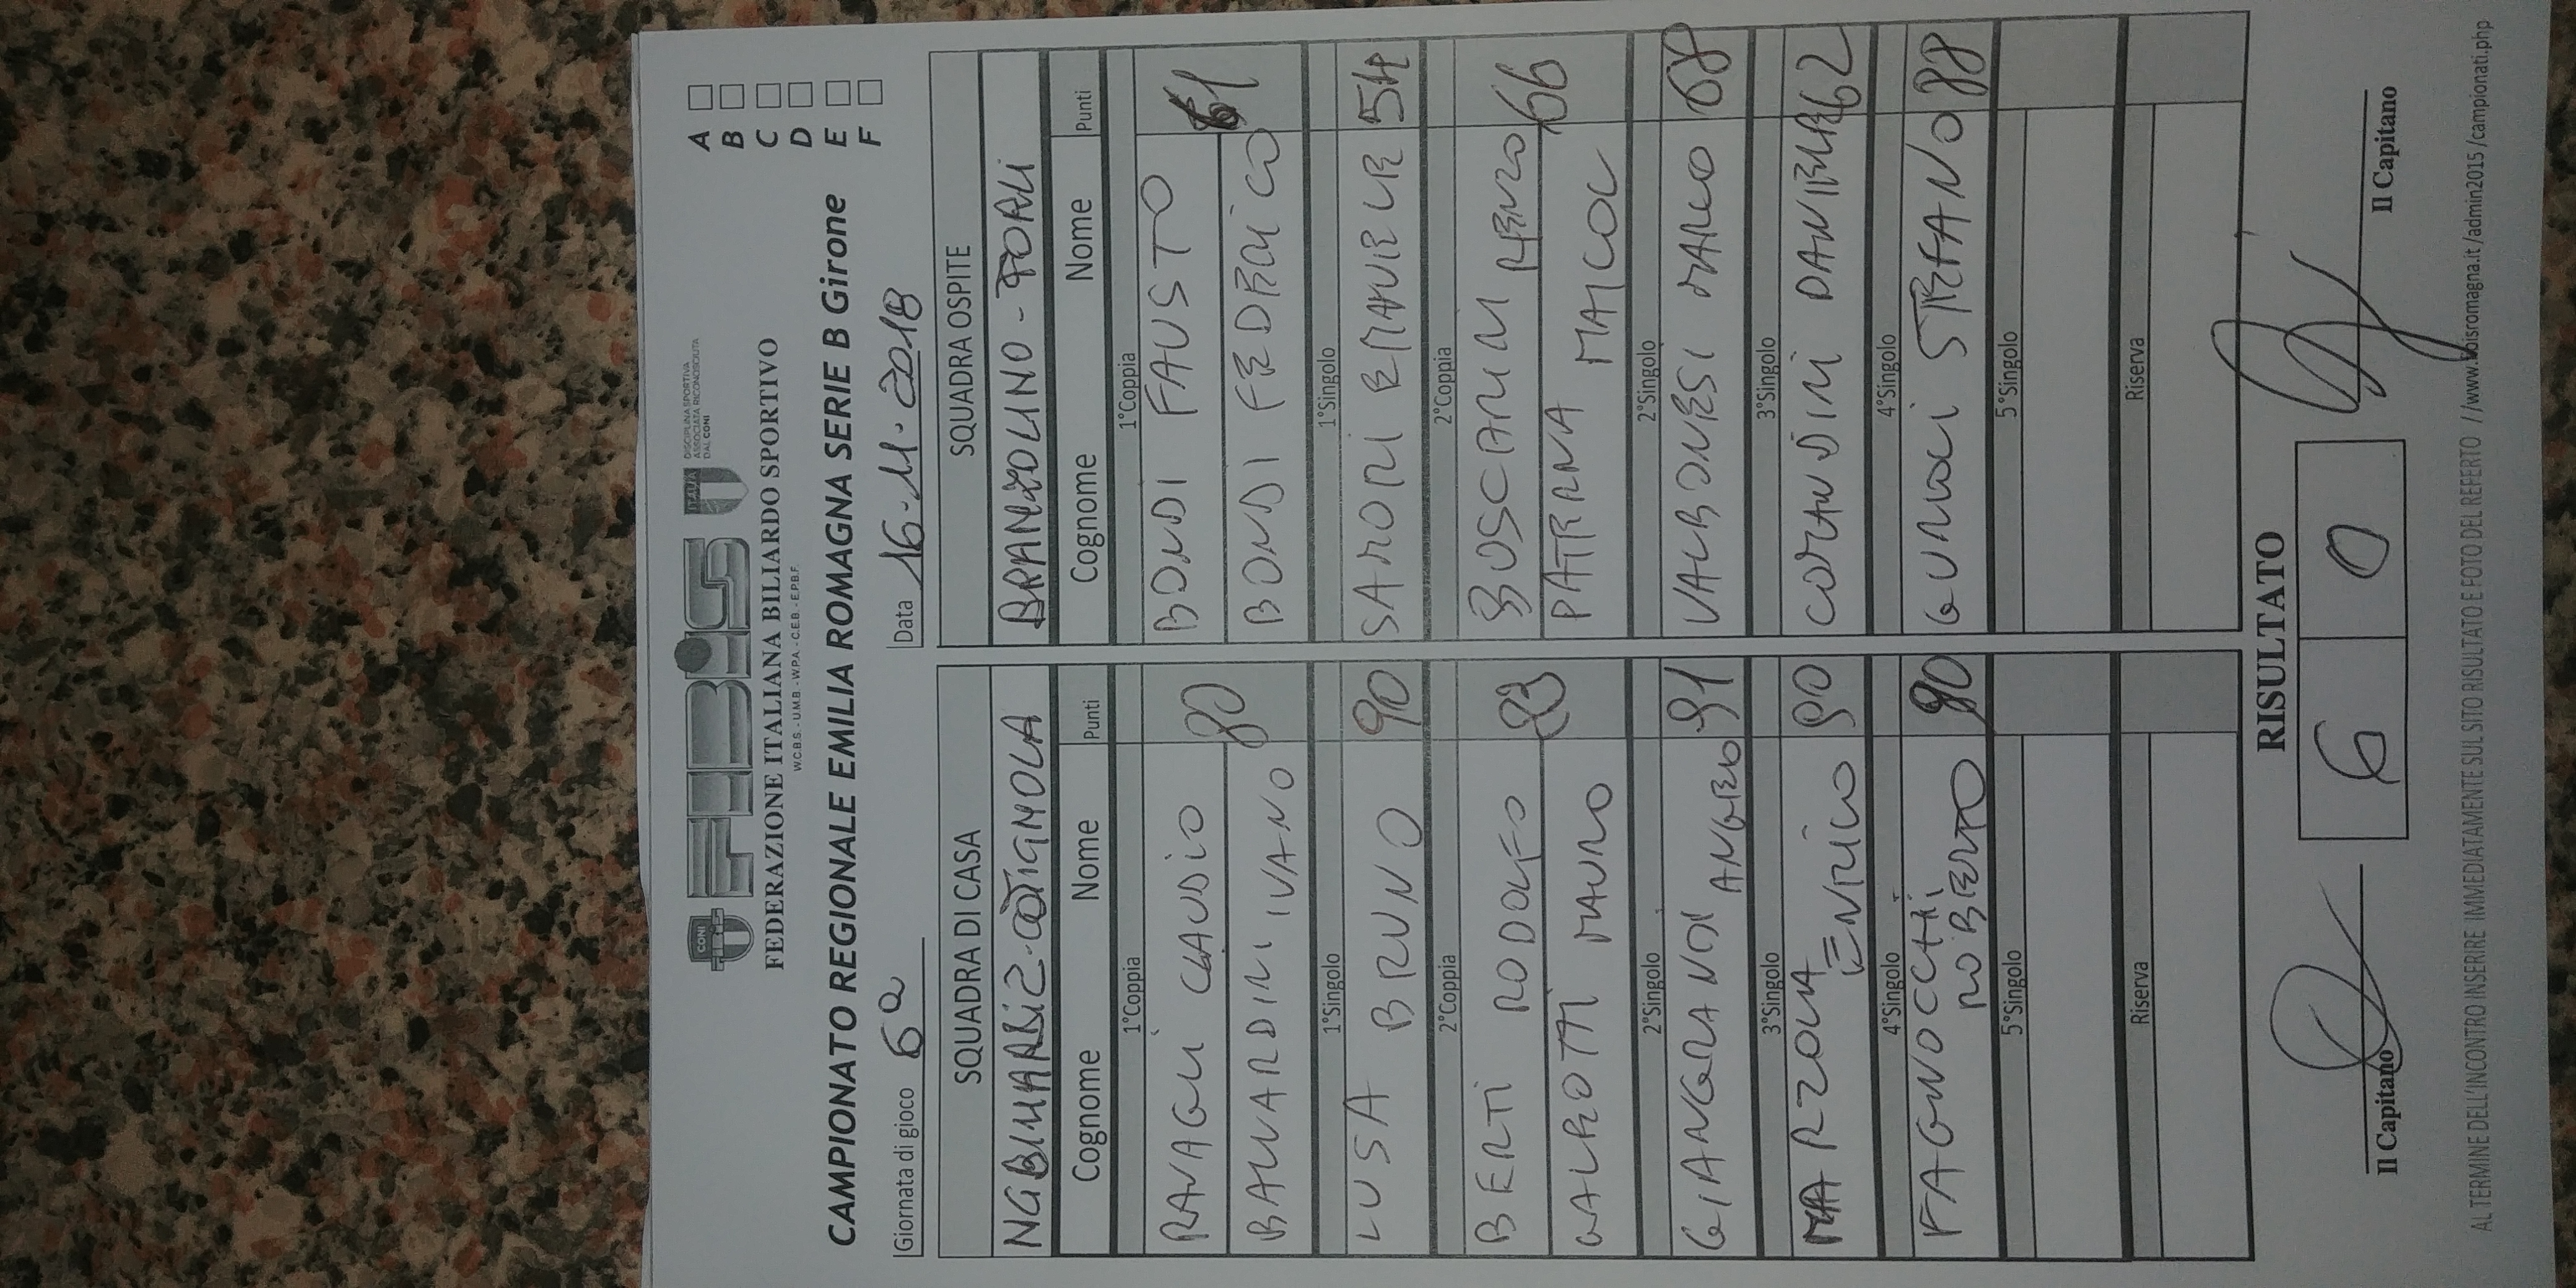 CONI
FIBiS
ITALIA
DISCIPLINA SPORTIVA
ASSOCIATA RICONOSCIUTA
DAL CONI
FEDERAZIONE ITALIANA BILIARDO SPORTIVO
W.C.B.S. - U.M.B. - W.P.A. - C.E.B. - E.P.B.F.
A
B
C
D
E
F
CAMPIONATO REGIONALE EMILIA ROMAGNA SERIE B Girone
Giornata di gioco 6a
Data 16-11-2018
SQUADRA DI CASA SQUADRA OSPITE
COTIGNOLA BRANZOLINO - FORLI
Cognome Nome Punti Cognome Nome Punti
1°Coppia 1°Coppia
RAVAGLI CLAUDIO BONDI FAUSTO
80 61
BALLARDINI IVANO BONDI FEDERICO
1°Singolo 1°Singolo
LUSA BRUNO 90 SAMORI EMANUELE 54
2°Coppia 2°Coppia
BERTI RODOLFO BOSCARINI RENZO
83 66
GALEOTTI MAURO PATERNA MAICOL
2°Singolo 2°Singolo
GIANGRANDI ANGELO 91 VALBONESI MARCO 68
3°Singolo 3°Singolo
MARZOLA ENRICO 90 CORTINI DANIELE 62
4°Singolo 4°Singolo
FAGNOCCHI ROBERTO 90 STEFANO 88
5°Singolo 5°Singolo
Riserva Riserva
RISULTATO
6 0
Il Capitano Il Capitano
AL TERMINE DELL'INCONTRO INSERIRE IMMEDIATAMENTE SUL SITO RISULTATO E FOTO DEL REFERTO //www.fibisromagna.it/admin2015/campionati.php